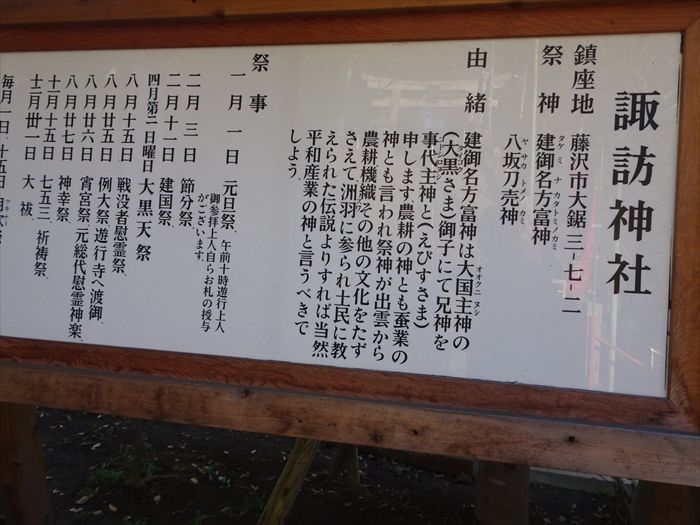 諏訪神社
鎮座地　藤沢市大鋸三-七-二
祭神　建御名方富神
タケミナカタトミノカミ
八坂刀売神
ヤサカトメノカミ
由緒　建御名方富神は大国主神の
オオクニヌシ
(大黒さま)御子にて兄神を
事代主神と(えびすさま)
申します農耕の神とも蚕業の
神とも言われ祭神が出雲から
農耕機織その他の文化をたず
さえて洲羽に参られ土民に教
えられた伝説よりすれば当然
平和産業の神と言うべきで
しょう
祭事
一月一日　元旦祭、午前十時遊行上人
御参拝上人自らお札の授与
がございます。
二月三日　節分祭、
二月十一日　建国祭、
四月第二日曜日　大黒天祭
八月十五日　戦没者慰霊祭、
八月廿五日　例大祭遊行寺へ渡御、
八月廿六日　宵宮祭元総代慰霊神楽、
八月廿七日　神幸祭、
十一月十五日　七五三祈祷祭、
十二月卅一日　大祓
毎月一日、十五日